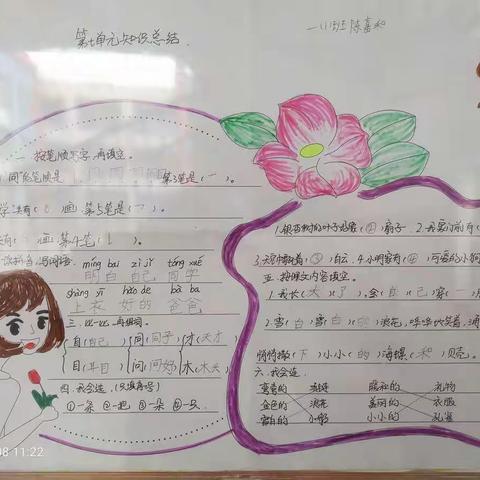 第七单元知识总结
一(1)班 陈嘉和
一、按笔顺写字，再填空。
"同"的笔顺是 第3笔是(一)。
学 共有(8)画 第5笔是(一)。
画 第4笔
míng bai zì jǐ tóng xué
明白 自己 同学
shàng yī hǎo de bà ba
上衣 好的 爸爸
三、比一比，再组词。
自(自己) 同(同子) 才(天才)
目(耳目) 问(问好) 木(木头)
四、我会选。(只填序号)
①一条 ②一把 ③一朵 ④一只
1.银杏树的叶子好像(②)扇子。2.我家门前有(
(③)白云。4.小明家有(④)可爱的小狗
五、按课文内容填空。
1.我长(大)(了)，(自)(己)穿(
2.雪(白)雪(白)(的)浪花，哗哗地笑着，涌
悄悄撒(下)小小(的)海螺(和)贝壳。
六、我会连。
弯弯的 沙滩 暖和的 礼物
金色的 浪花 美丽的 衣服
雪白的 小船 小小的 孔雀
08 11:22